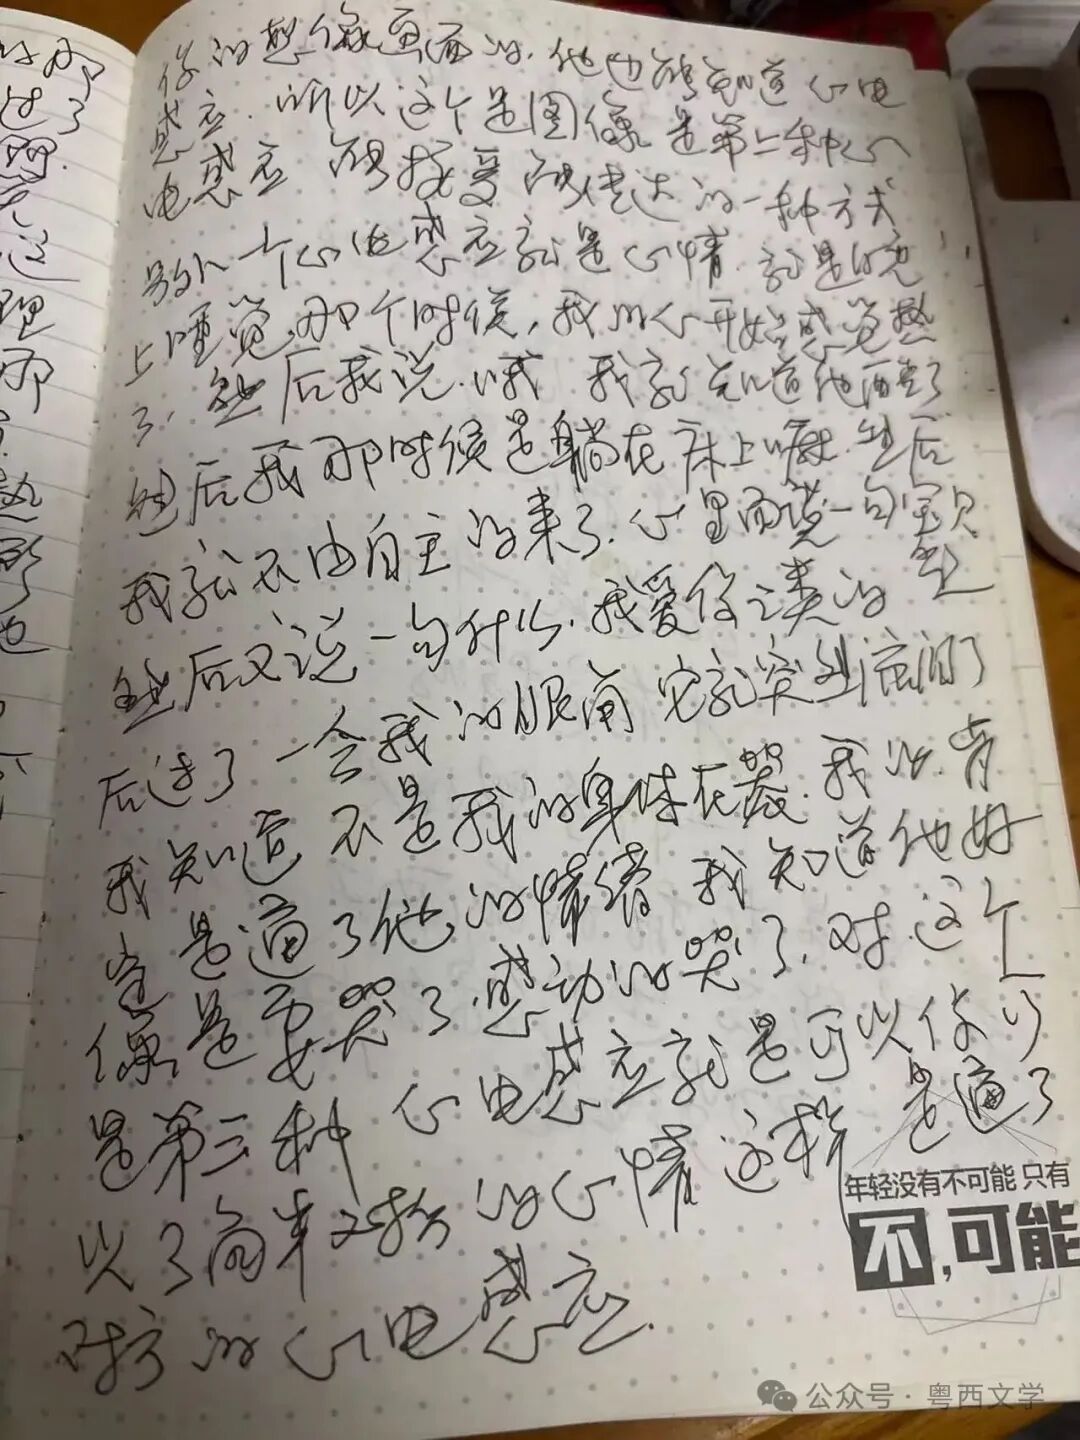 你的想像画面的，他也能知道心电
感应．所以这个是图像是第二种心
电感应 能接受能传达的一种方式
另外一个心电感应就是心情．就是晚
上睡觉那个时候，我的心开始感觉热
了．然后我说．哦 我就知道他来了
然后我那时候是躺在床上嘛．然后
我就不由自主的来了．心里面说一句宝贝
然后又说一句什么．我爱你之类的 然
后过了一会我的眼角 它就突然湿润了
我知道 不是我的身体在哭．我的
是通了他的情绪 我知道他好
像是要哭了．感动的哭了．对．这个
是第三种 心电感应就是可以你可
以了解对方的心情 这样 是通了
对方的心电感应．
年轻没有不可能 只有
不，可能
公众号·粤西文学